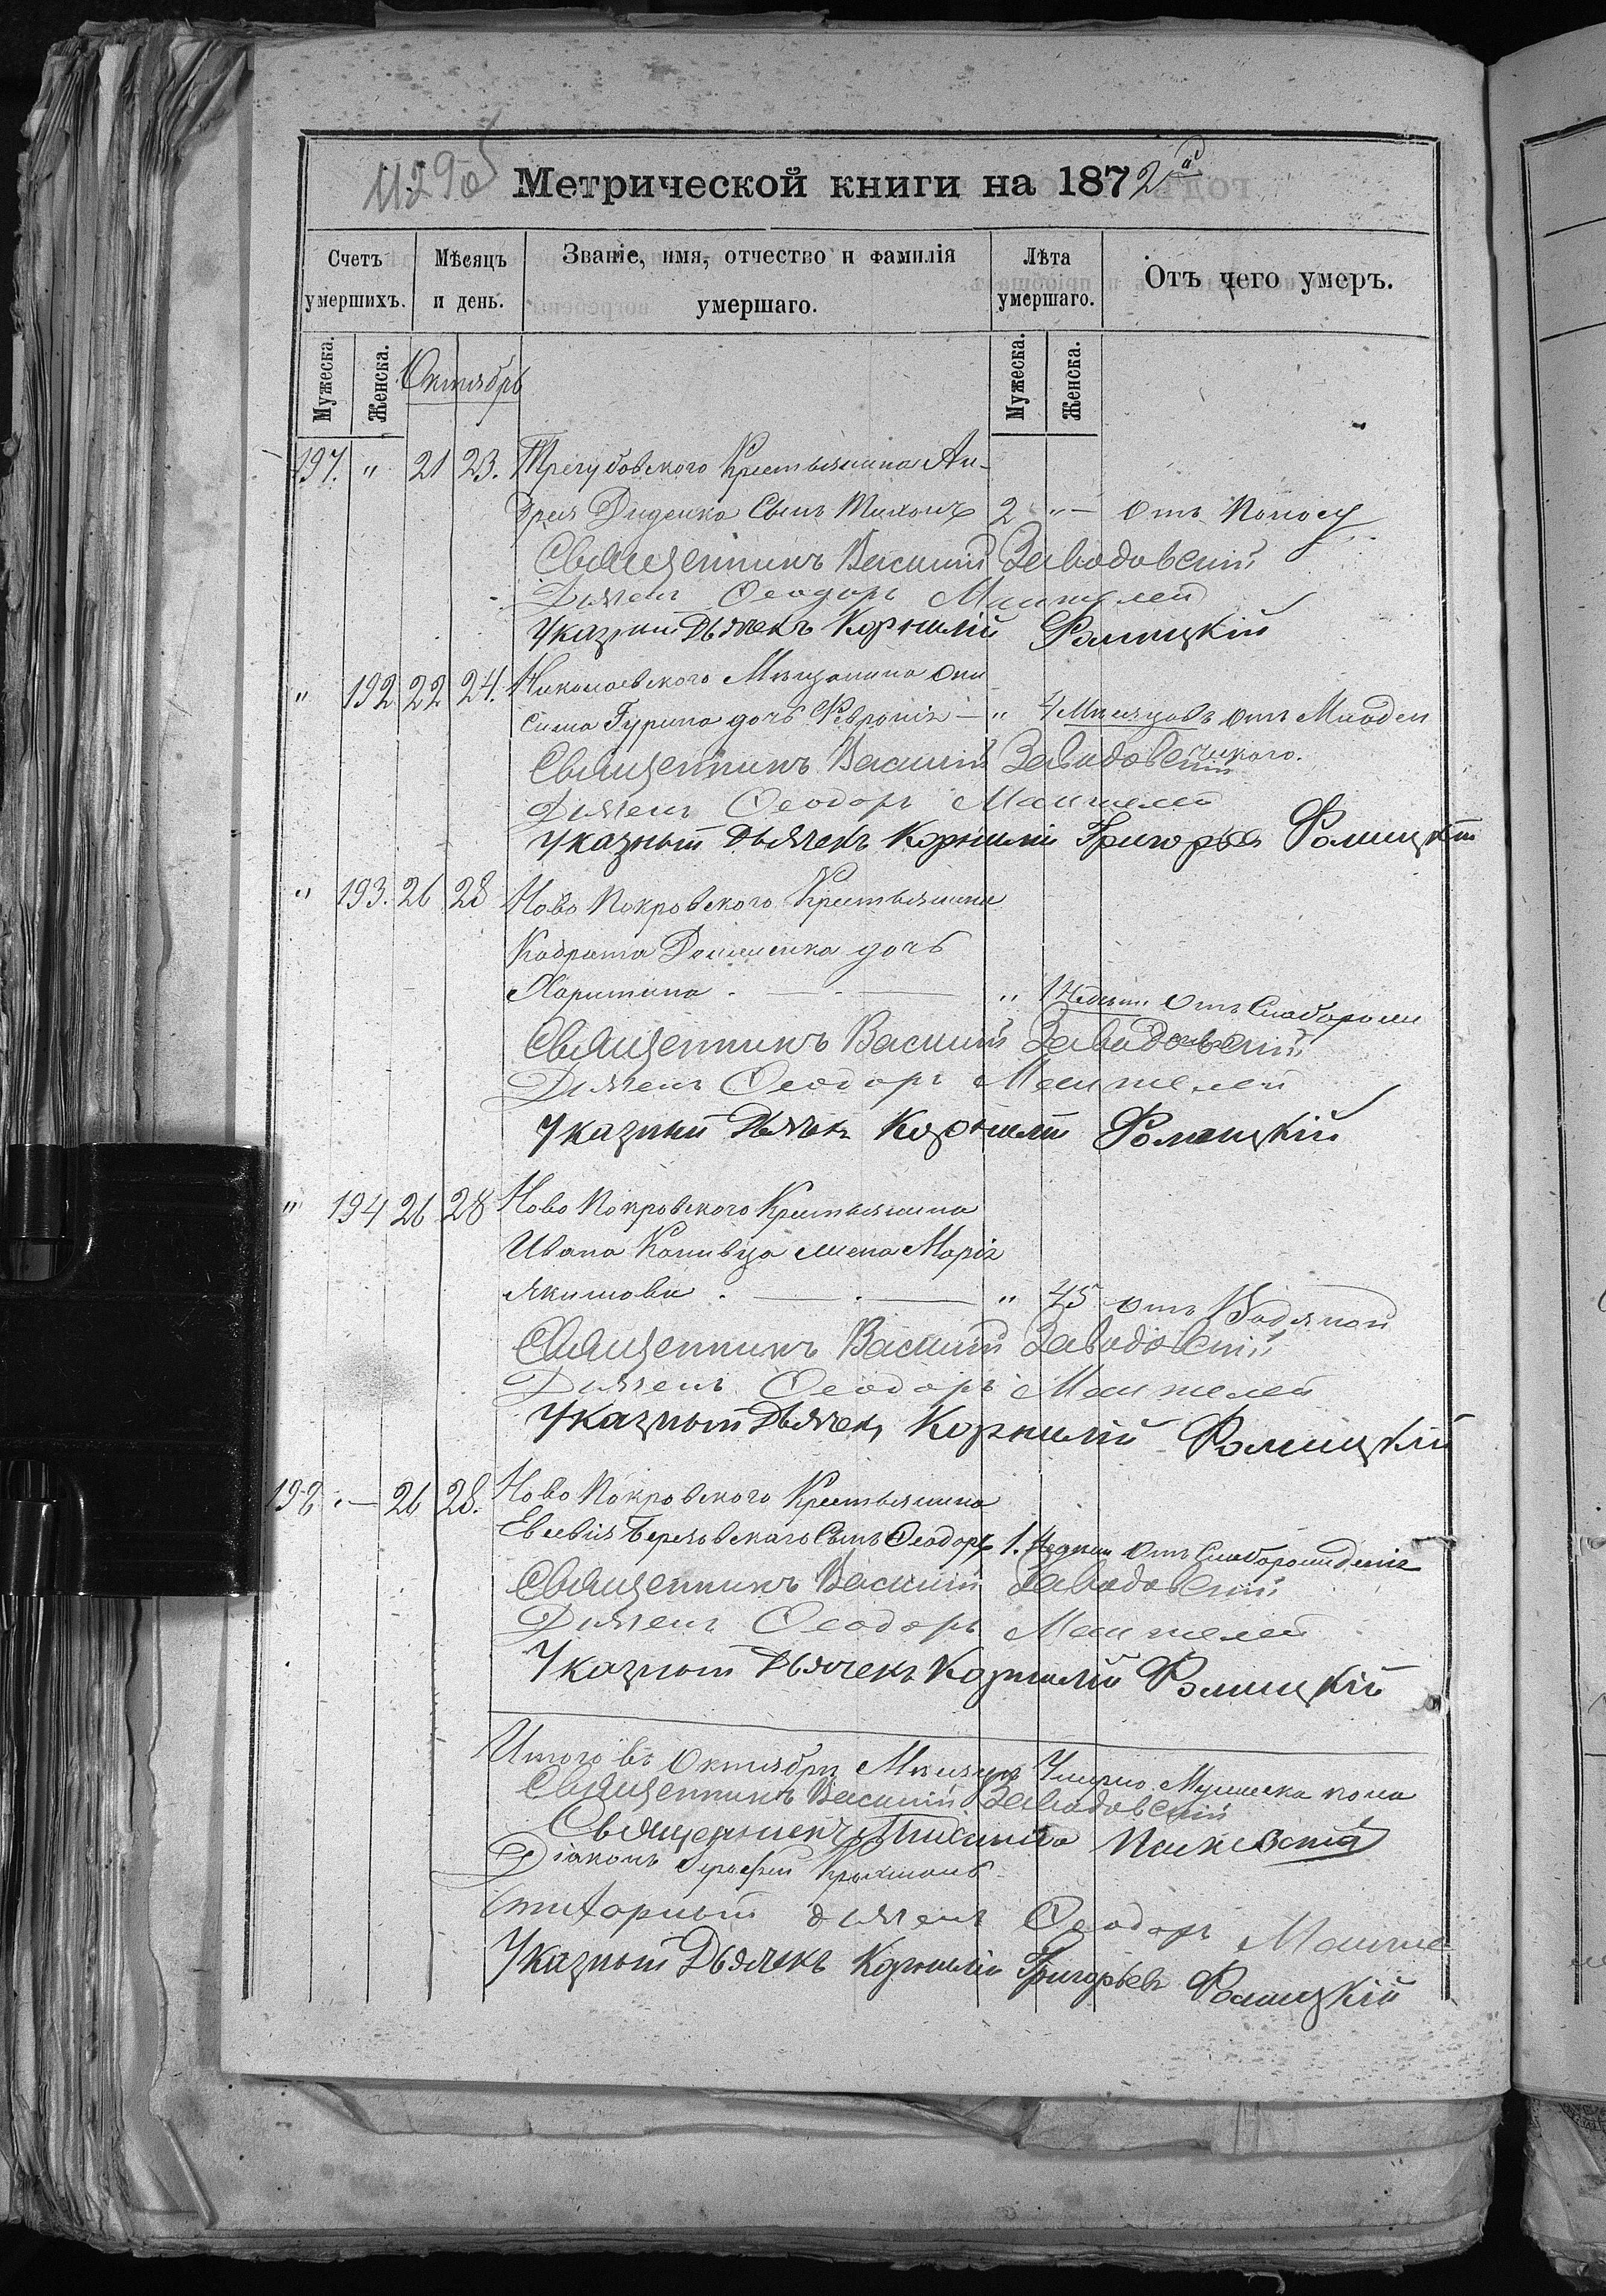 1129об
Метрической книги на 1872й
Счетъ умершихъ.
Мѣсяцъ и день.
Званіе, имя, отчество и фамилія умершаго.
Лѣта умершаго.
Отъ чего умеръ.
Мужеска.
Женска.
Октябрь
Мужеска.
Женска.
197. " 21 23. Трегубовского Крестьянина Ан-
дрея Диденка Сынъ Тихонъ 2 " — отъ Поносу
Священникъ Василий Заводовский
Дьячекъ Ѳеодоръ
Указный Дьячекъ Корнилій Фомицкій
" 192 22 24. Николаевского Мѣщанина Они
сима Гурина дочь Феврония — " 4 Мѣсяцовъ отъ Младен
ческого.
Священникъ Василий Заводовский
Дьячекъ Ѳеодоръ
Указный Дьячекъ Корнилій Григорьев Фомицкій
" 193. 26 28 Ново Покровского Крестьянина
Кодрата дочь
Харитина . — . — " 1 Недели отъ Слаборожд
Священникъ Василий Заводовский
Дьячекъ Ѳеодоръ
Указный Дьячекъ Корнилій Фомицкій
" 194 26 28 Ново Покровского Крестьянина
Ивана жена Марія
Якимова . — . — " 45 отъ Водяной
Священникъ Василий Заводовский
Дьячекъ Ѳеодоръ
Указный Дьячекъ Корнилій Фомицкій
198 . — 26 28. Ново Покровского Крестьянина
Евсевія Березовскаго Сынъ Ѳеодоръ 1. Недели отъ Слаборожденія
Священникъ Василий Заводовский
Дьячекъ Ѳеодоръ
Указный Дьячекъ Корнилій Фомицкій
Итого въ Октябрѣ Мѣсяцѣ Умерло Мужеска пола
Священникъ Василий Заводовский
Священникъ
Діаконъ
дьячекъ Ѳеодоръ
Указный Дьячекъ Корнилій Григорьев Фомицкій